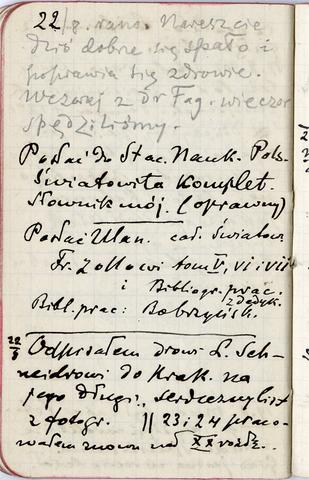 22/8. rano. Nareszcie
dziś dobrze się spało i
poprawia się zdrowie.
Wczoraj z Dr Fag. wieczór
spędziliśmy.
Posłać do Stac. Nauk. Pols.
Światowita komplet.
Słownik mój. (oprawny)
Posłać Ułan. cał. Światow.
Fr. Zołłowi tom V, VI i VII
i Bibliogr. prac.
z dedyk.
Bibl. prac: Bobrzyński.
22/8 Odpisałem drowi L. Sch-
neidrowi do Krak. na
jego długi, serdeczny list
z fotogr. || 23 i 24 praco-
wałem znowu nad XX rozdz.